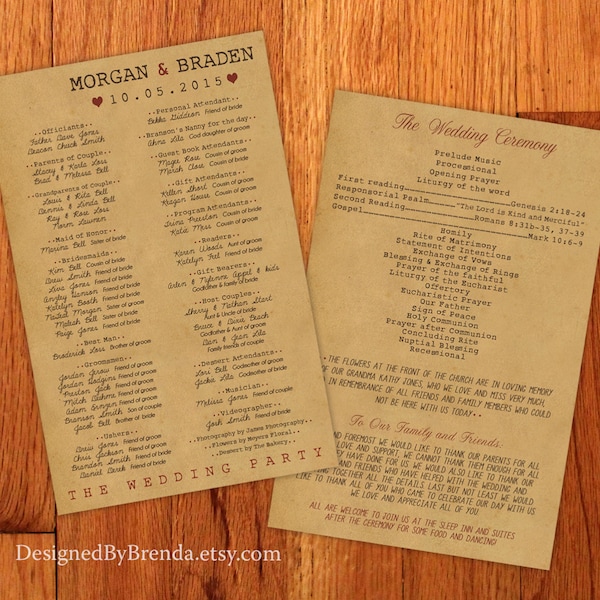 MORGAN & BRADEN
10.05.2015
..Officiants..
Father Dave Jones
Deacon Chuck Smith
..Parents of Couple..
Stacey & Karla Loss
Brad & Melissa Bell
..Grandparents of Couple..
Louis & Rita Bell
Dennis & Linda Bell
Ray & Rose Loss
Norm Lawmen
..Maid of Honor..
Marina Bell Sister of bride
..Bridesmaids..
Kim Bell Cousin of bride
Drew Smith Friend of bride
Olivia Jones Friend of bride
Angley Hanson Friend of bride
Katelyn Booth Friend of bride
Natasha Booth Friend of bride
Mariah Bell Sister of groom
Paige Jones Friend of bride
..Best Man..
Broderick Loss Brother of groom
..Groomsmen..
Jordan Girou Friend of groom
Jordan Hodgins Friend of groom
Preston Jack Friend of groom
Mitch Jackson Friend of groom
Adam Smith Friend of groom
Branson Smith Son of couple
Jacob Bell Brother of bride
..Ushers..
Drew Jones Friend of groom
Chris Jackson Friend of groom
Brandon Smith Friend of groom
Daniel Derek Friend of groom
..Personal Attendant..
Bekka Middleton Friend of bride
..Branson's Nanny for the day..
Ahna Lila God daughter of groom
..Guest Book Attendants..
Mayci Rose Cousin of bride
Mariah Close Cousin of bride
..Gift Attendants..
Killen Short Cousin of groom
Keagan House Cousin of groom
..Program Attendants..
Trina Smith Cousin of groom
Kala Mess Cousin of groom
..Readers..
Karen Woods Aunt of groom
Katelyn Fret Friend of bride
..Gift Bearers..
Arlen & Nylenne Appel & kids
Godfather & family of bride
..Host Couples..
Sherry & Nathan Start
Aunt & Uncle of bride
Bruce & Dixie Beach
Godfather & Aunt of groom
Dan & Jean Lila
Family friends of couple
..Dessert Attendants..
Lori Bell Godmother of bride
Jacka Lila Godmother of bride
..Musician..
Melissa Jones Friend of couple
..Videographer..
Josh Smith Friend of bride
..Photography by James Photography..
..Flowers by Meyers Floral..
..Dessert by The Bakery..
THE WEDDING PARTY
The Wedding Ceremony
Prelude Music
Processional
Opening Prayer
Liturgy of the word
First reading Genesis 2:18-24
Responsorial Psalm "The Lord is Kind and Merciful"
Second Reading Romans 8:31b-35, 37-39
Gospel Mark 10:6-9
Homily
Rite of Matrimony
Statement of Intentions
Exchange of Vows
Blessing & Exchange of Rings
Prayer of the faithful
Liturgy of the Eucharist
Offertory
Eucharistic Prayer
Our Father
Sign of Peace
Holy Communion
Prayer after Communion
Concluding Rite
Nuptial Blessing
Recessional
THE FLOWERS AT THE FRONT OF THE CHURCH ARE IN LOVING MEMORY
OF OUR GRANDMA KATHY JONES, WHO WE LOVE AND MISS VERY MUCH,
IN REMEMBRANCE OF ALL FRIENDS AND FAMILY MEMBERS WHO COULD
NOT BE HERE WITH US TODAY..
To Our Family and Friends,
AND FOREMOST WE WOULD LIKE TO THANK OUR PARENTS FOR ALL
LOVE AND SUPPORT, WE CANNOT THANK THEM ENOUGH FOR ALL
THEY HAVE DONE FOR US. WE WOULD ALSO LIKE TO THANK OUR
AND FRIENDS WHO HAVE HELPED WITH THE WEDDING AND
TOGETHER ALL THE DETAILS. LAST BUT NOT LEAST WE WOULD
LIKE TO THANK ALL OF YOU WHO CAME TO CELEBRATE OUR DAY WITH US
WE LOVE AND APPRECIATE ALL OF YOU.
ALL ARE WELCOME TO JOIN US AT THE SLEEP INN AND SUITES
AFTER THE CEREMONY FOR SOME FOOD AND DANCING!
DesignedByBrenda.etsy.com